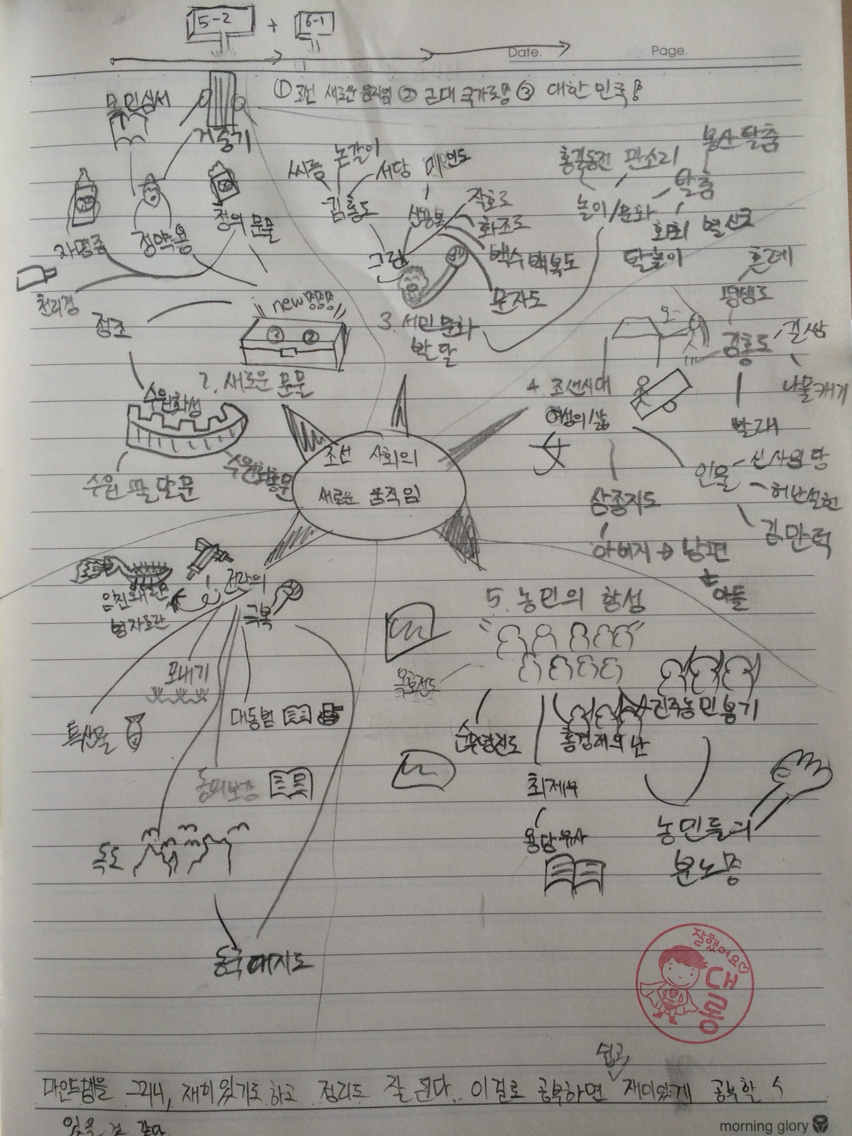 5-2 + 6-1
Date. Page.
① 조선 새로운 움직임 ② 근대 국가로 ③ 대한민국
목민심서
거중기
자명종
정약용
청의 문물
천리경
new
정조
2. 새로운 문물
수원화성
수원 팔달문
씨름
논갈이
서당
미인도
김홍도
신윤복
작호도
화조도
백수백복도
문자도
그림
3. 서민 문화
발달
홍길동전
판소리
봉산탈춤
탈춤
놀이/문화
하회 별신굿
탈놀이
혼례
평생도
김홍도
길쌈
나물캐기
빨래
4. 조선시대
여성의 삶
삼종지도
아버지 → 남편
아들
인물
신사임당
허난설헌
김만덕
조선 사회의
새로운 움직임
전란의
극복
임진왜란
병자호란
모내기
특산물
대동법
동의보감
독도
대동여지도
5. 농민의 함성
홍경래의 난
진주농민봉기
최제우
용담유사
농민들의
분노
잘했어요♡
대롱
마인드맵을 그리니, 재미있기도 하고 정리도 잘 된다. 이걸로 공부하면 쉽고 재미있게 공부할 수
있을 것 같다
morning glory